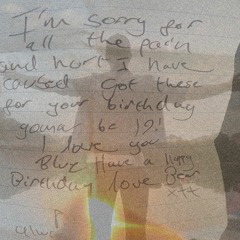 I'm sorry for
all the pain
and hurt I have
caused Got these
for your birthday
gonna be 19!
I love you
Blue Have a Happy
Birthday love Bear
x++